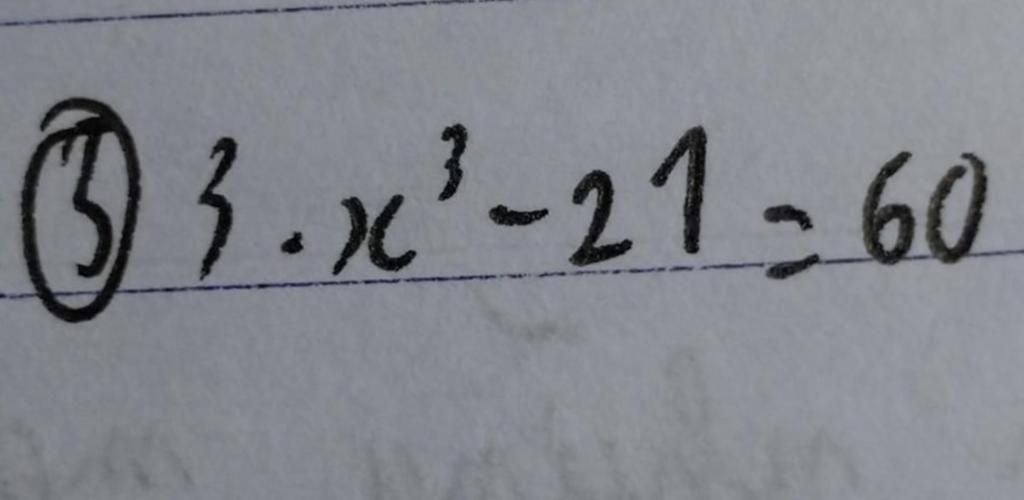 ③ 3 . x³ - 21 = 60